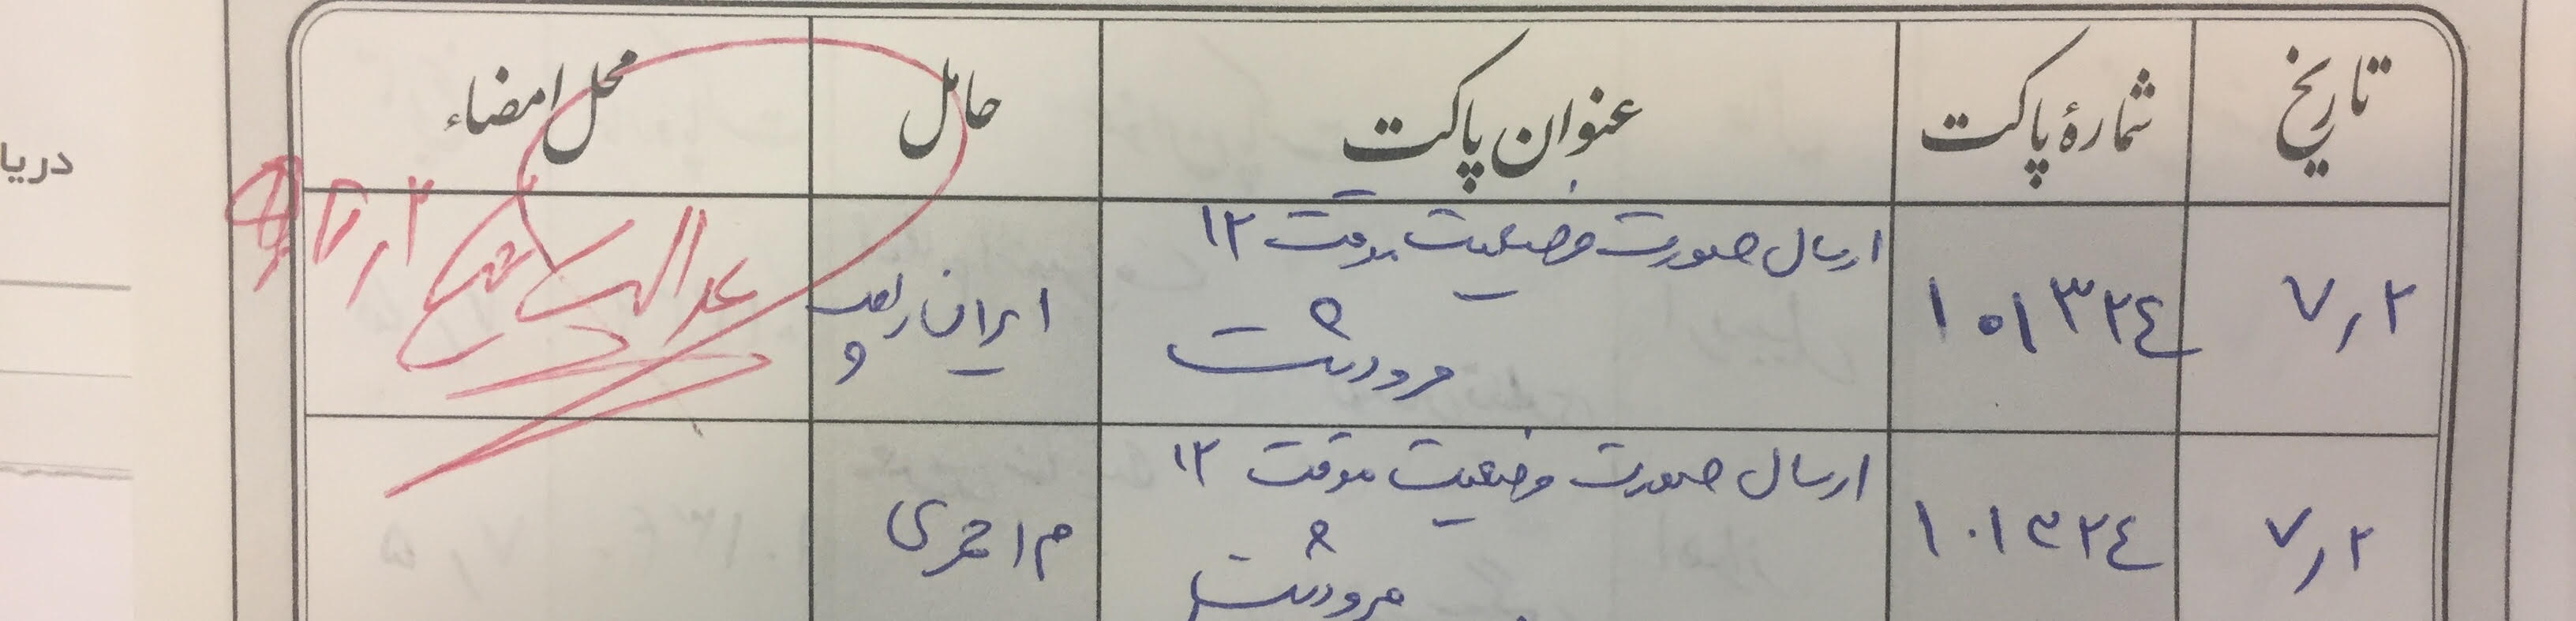 تاریخ شمارهٔ پاکت عنوان پاکت حامل محل امضاء
۷٫۲ ۱۰۱۳۲۴ ارسال صورت وضعیت موقت ۱۲
مرودشت
ایران
۷٫۲ ۱۰۱۳۲۴ ارسال صورت وضعیت موقت ۱۲
مرودشت
م احمدی
دریا